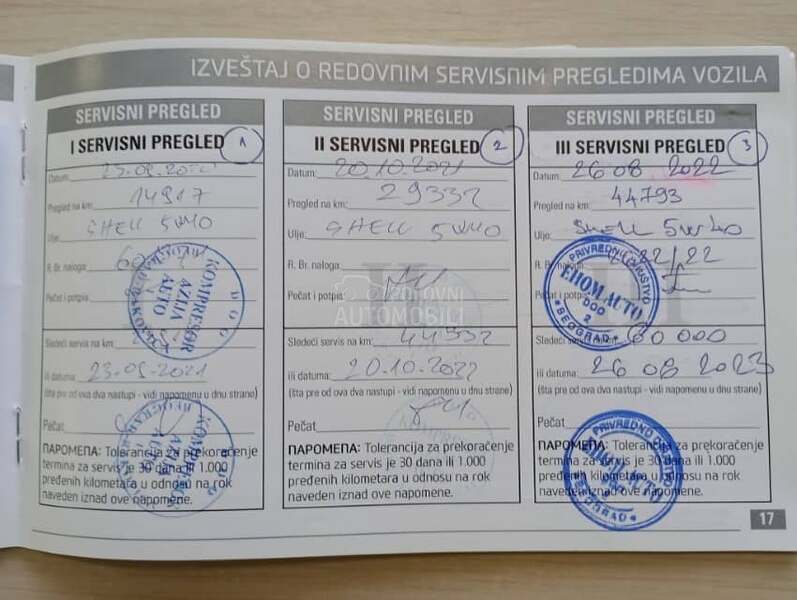 IZVEŠTAJ O REDOVNIM SERVISNIM PREGLEDIMA VOZILA
SERVISNI PREGLED
I SERVISNI PREGLED 1
Datum:
Pregled na km: 14917
Ulje: SHELL 5W40
R. Br. naloga:
Pečat i potpis:
KOMPRESOR
AZIJA
AUTO
DOO
Sledeći servis na km:
ili datuma:
(šta pre od ova dva nastupi - vidi napomenu u dnu strane)
Pečat
ПAPOMEПA: Tolerancija za prekoračenje
termina za servis je 30 dana ili 1.000
pređenih kilometara u odnosu na rok
naveden iznad ove napomene.
SERVISNI PREGLED
II SERVISNI PREGLED 2
Datum: 20.10.2021
Pregled na km: 29332
Ulje: SHELL 5W40
R. Br. naloga:
Pečat i potpis:
POLOVNI
AUTOMOBILI
Sledeći servis na km: 44332
ili datuma: 20.10.2022
(šta pre od ova dva nastupi - vidi napomenu u dnu strane)
Pečat
ПAPOMEПA: Tolerancija za prekoračenje
termina za servis je 30 dana ili 1.000
pređenih kilometara u odnosu na rok
naveden iznad ove napomene.
SERVISNI PREGLED
III SERVISNI PREGLED 3
Datum: 26 08 2022
Pregled na km: 44793
Ulje: SHELL 5W40
R. Br. naloga: 22/22
Pečat i potpis:
PRIVREDNO DRUŠTVO
AUTO
DOO
2
BEOGRAD
Sledeći servis na km: 60 000
ili datuma: 26 08 2023
(šta pre od ova dva nastupi - vidi napomenu u dnu strane)
Pečat
PRIVREDNO DRUŠTVO
AUTO
BEOGRAD
ПAPOMEПA: Tolerancija za prekoračenje
termina za servis je 30 dana ili 1.000
pređenih kilometara u odnosu na rok
naveden iznad ove napomene.
17